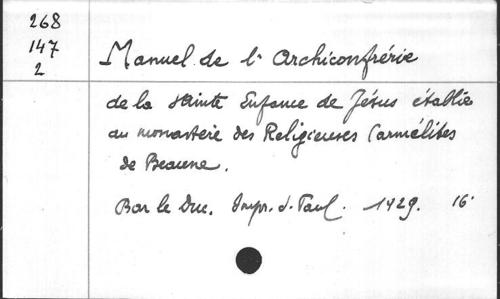 268
147
2
Manuel de l'Archiconfrérie
de la Sainte Enfance de Jésus établie
au monastère des Religieuses Carmélites
de Beaune.
Bar le Duc. Impr. S. Paul. 1929. 16°